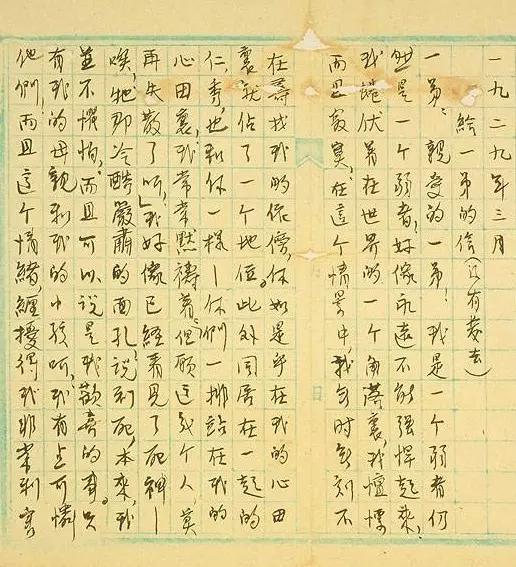 一九二九年三月
給一弟的信（沒有發去）
一弟，親愛的一弟！我是一个弱者，仍
然是一个弱者，好像永遠不能強悍起來，
我蜷伏着在世界的一个角落裏，我
而且寂寞，在這个情景中，我無时無刻不
在尋找我的，你如是乎在我的心田
裏就佔了一个地位。此外同居在一起的
仁，秀，也和你一樣—你們一排站在我的
心田裏，我常常默禱着，但願這幾个人莫
再失散了呵，我好像已經看見了死神—
唉，牠那冷酷嚴肅的面孔，說到死，本來，我
並不懼怕，而且可以說是我歡喜的事。只
有我的母親和我的小孩呵，我有点可憐
他們，而且這个情緒，纏擾得我非常利害